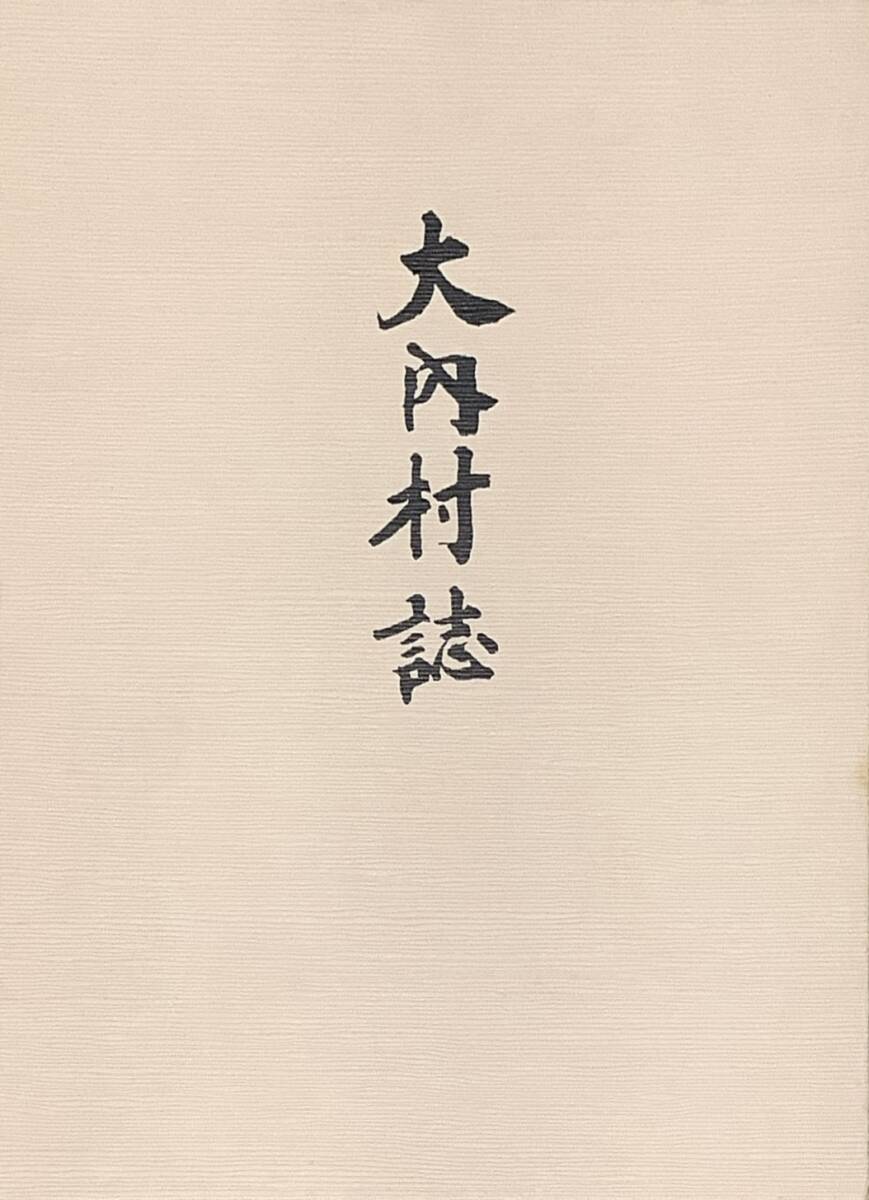 大内村誌